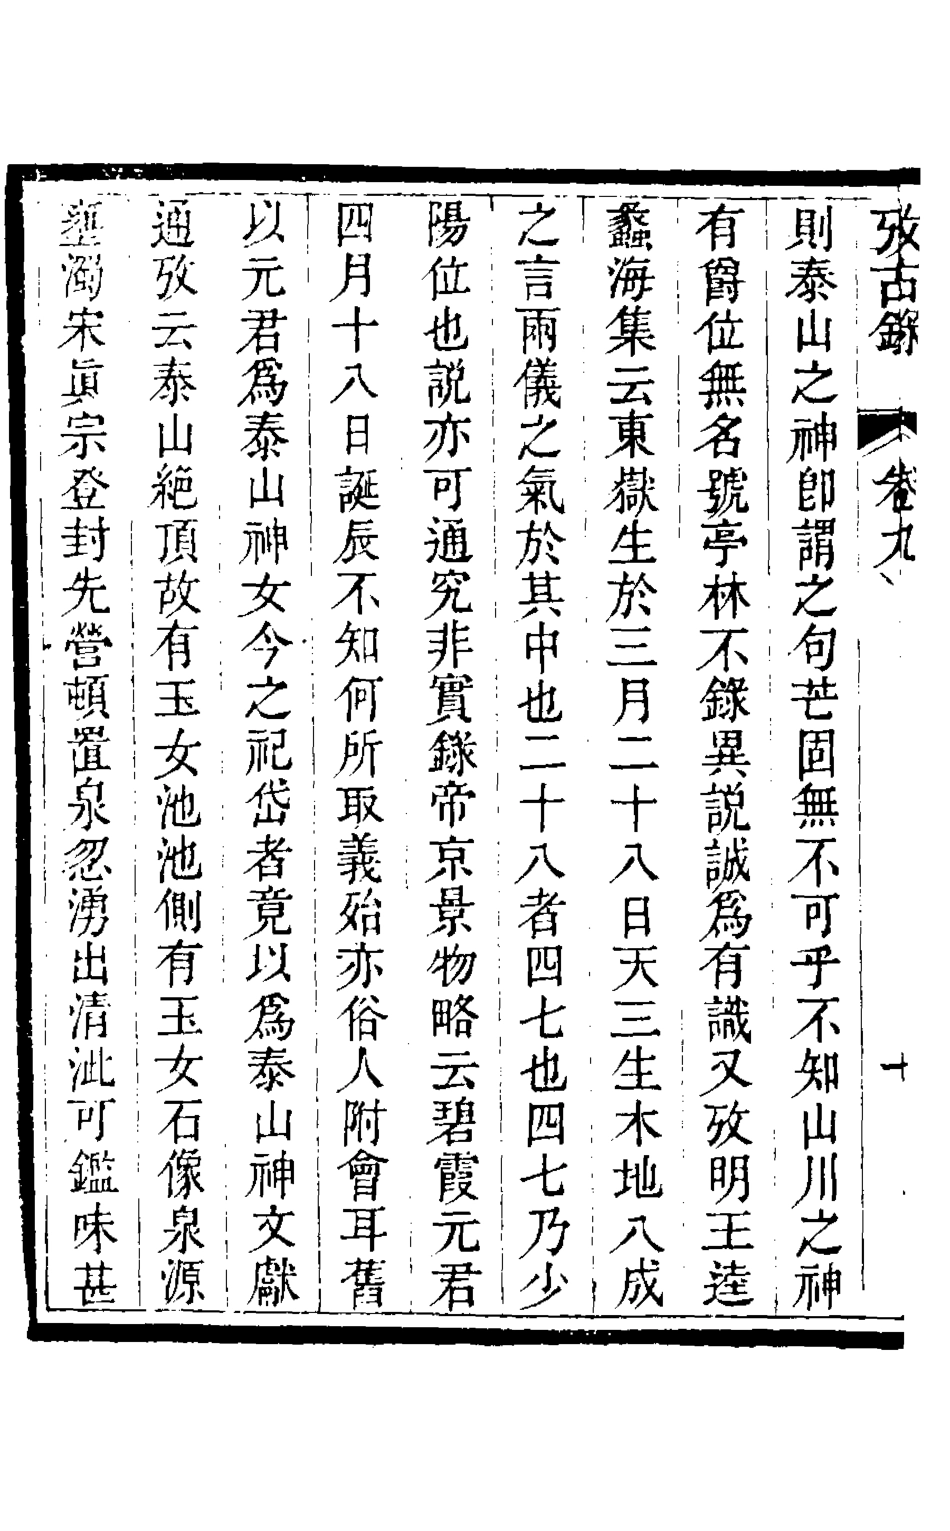 攷古錄 卷九 十
則泰山之神卽謂之句芒固無不可乎不知山川之神
有爵位無名號亭林不錄異説誠爲有識又攷明王逵
蠡海集云東嶽生於三月二十八日天三生木地八成
之言兩儀之氣於其中也二十八者四七也四七乃少
陽位也説亦可通究非實錄帝京景物略云碧霞元君
四月十八日誕辰不知何所取義殆亦俗人附會耳舊
以元君爲泰山神女今之祀岱者竟以爲泰山神文獻
通攷云泰山絕頂故有玉女池池側有玉女石像泉源
壅濁宋眞宗登封先營頓置泉忽湧出清泚可鑑味甚